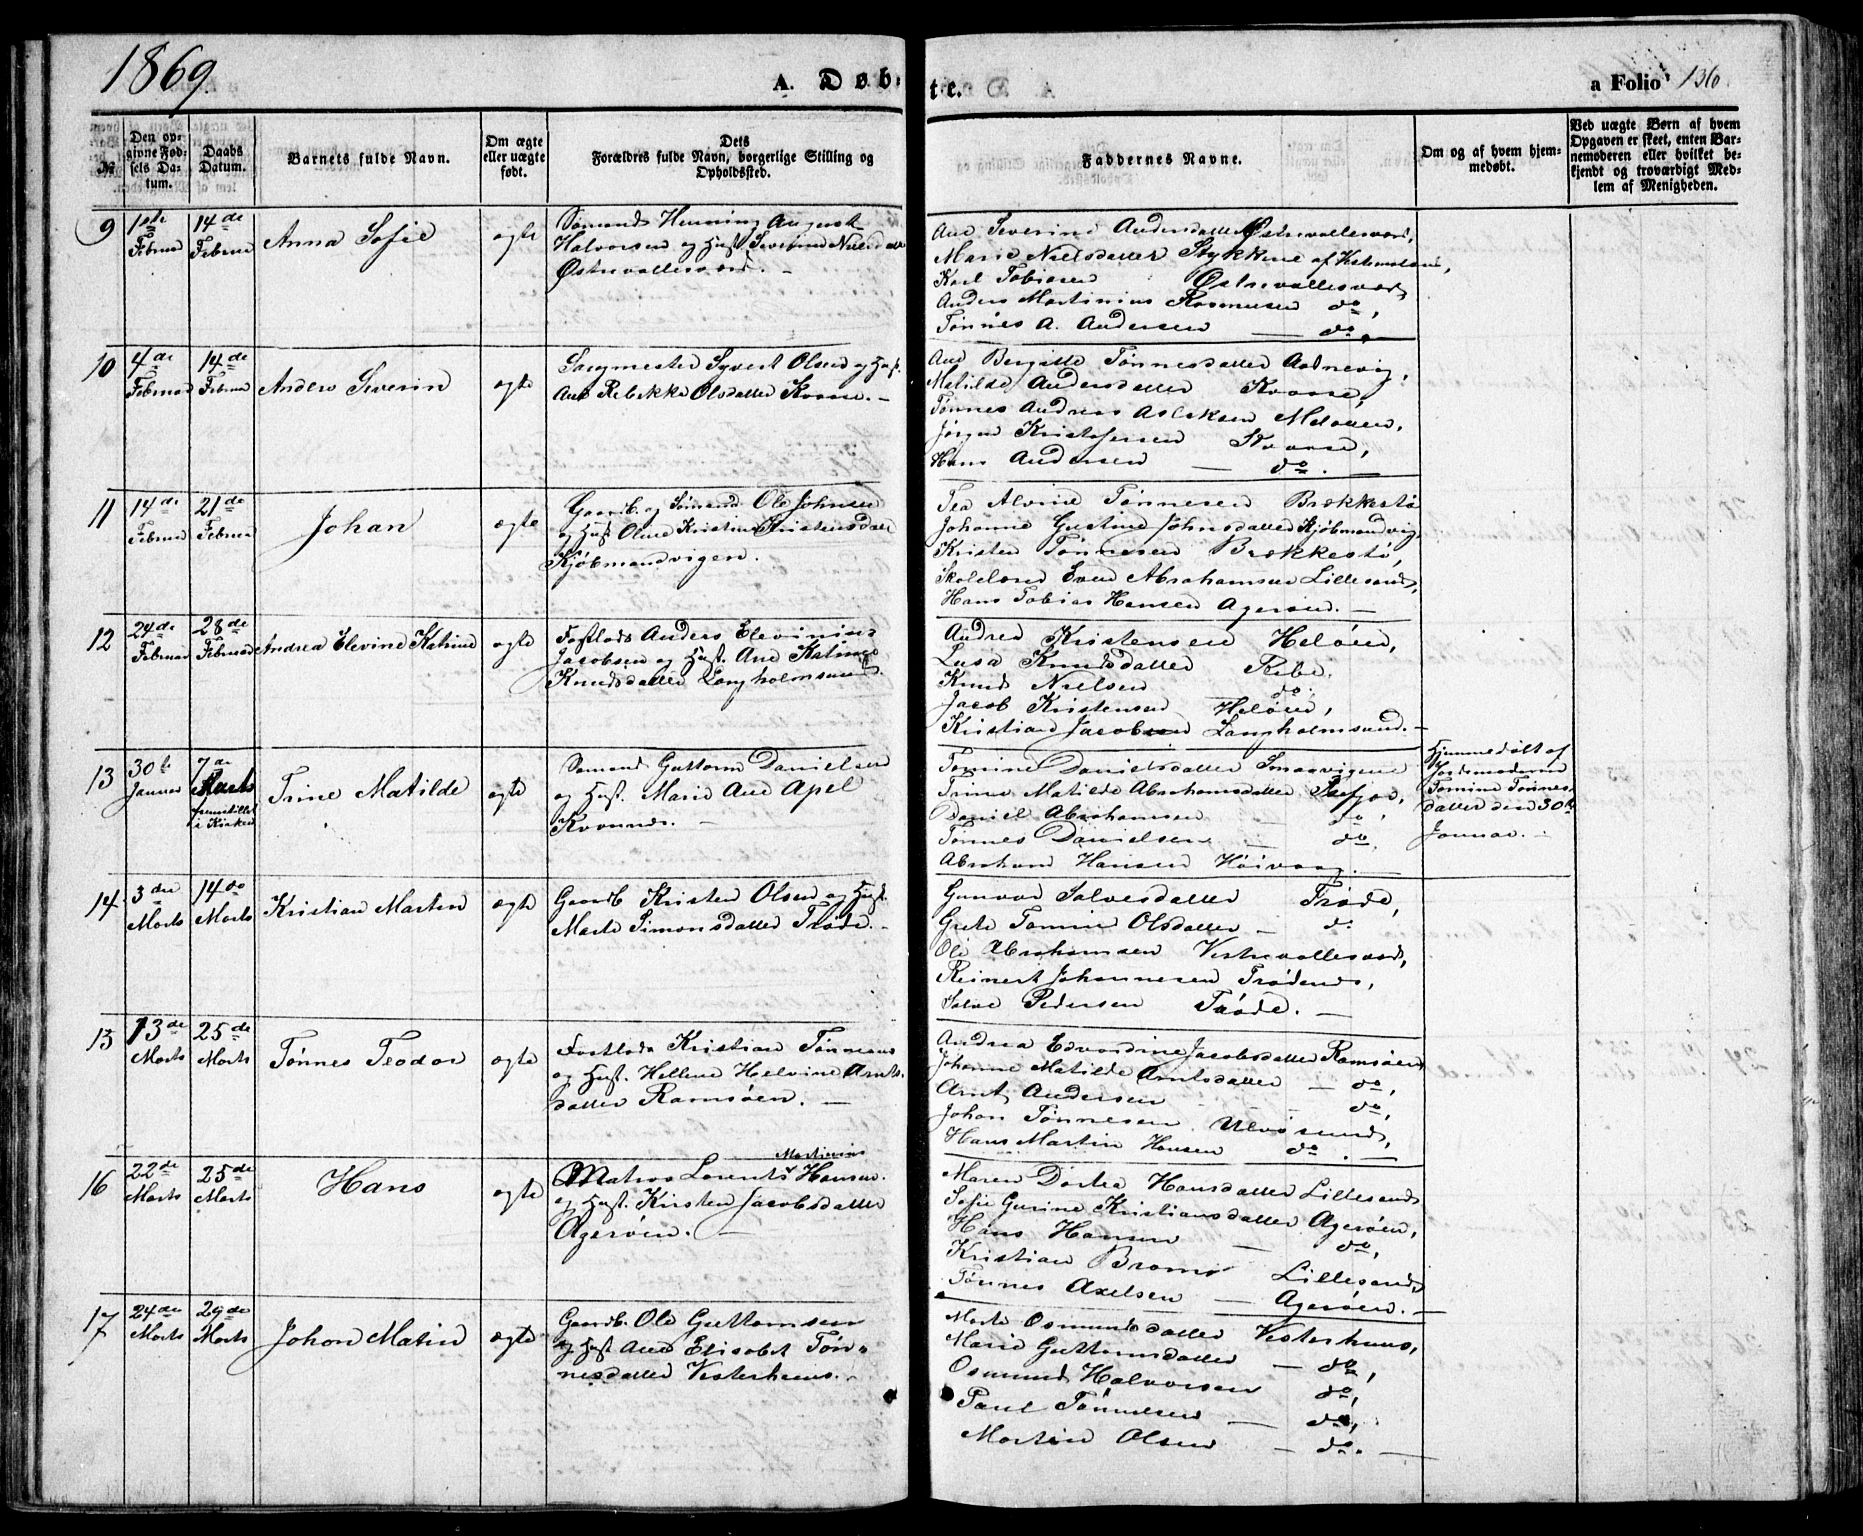 1869.
A. Døb-
te.
a Folio 136.
№
Den op-
givne Fød-
sels Da-
tum.
Daabs
Datum.
Barnets fulde Navn.
Om ægte
eller uægte
født.
Dets
Forældres fulde Navn, borgerlige Stilling og
Opholdssted.
Faddernes Navne.
Om og af hvem hjem-
medøbt.
Ved uægte Børn af hvem
Opgaven er skeet, enten Bar-
nemoderen eller hvilket be-
kjendt og troværdigt Med-
lem af Menigheden.
9
1ste
Februar
14de
Februar
Anna Sofie
ægte
Sømand Henning August
Halvorsen og Hust. Severine Nielsdatter
Østrevallesverd. –
Ane Severine Andersdatter Østrevallesverd,
Marie Nielsdatter Stykkene af Vestmoland,
Karl Tobiasen Østrevallesverd,
Anders Martinius Rasmusen do,
Tønnes A. Andersen — do.
10
4de
Februar
14de
Februar
Anders Severin
ægte
Sangmester Syvert Olsen og Hust.
Ane Rebekke Olsdatter Kvaase. –
Ane Bergitte Tønnesdatter Aadnevig,
Matilde Andersdatter Kvaase,
Tønnes Andreas Aslaksen
Jørgen Kristofersen Kvaase,
Hans Andersen — do. —
11
14de
Februar
21de
Februar
Johan
ægte
Gaardb. og Sømand Ole Johnsen
og Hust Oline Kristine Kristensdatter
Kjøbmandvigen.
Tea Alvine Tønnesen Brækkestø
Johanne Gustine Johnsdatter Kjøbmandvig,
Kristen Tønnesen Brækkestø,
Skolelærer Even Abrahamsen Lillesand,
Hans Tobias Hansen Agerøen. —
12
24de
Februar
28de
Februar
Andrea Elevine Katrine
ægte
Fastlods Anders Elevinius
Jacobsen og Hust. Ane Katrine
Knudsdatter Langholmsund.
Andrea Kristensen Heløen,
Lusa Knudsdatter Ribe.
Knud Nielsen do.
Jacob Kristensen Heløen,
Kristian Jacobsen Langholmsund. –
13
30te
Januar
7de
Marts
fremstillet
i Kirken
Trine Matilde
ægte
Sømand Guttorm Danielsen
og Hust. Marie Ane Apel
Kvannes. —
Tomine Danielsdatter Smaavigene
Trine Matilde Abrahamsdatter
Daniel Abrahamsen — do,
Tønnes Danielsen — do.
Abraham Hansen Høivaag. —
Hjemmedøbt af
Jordemoderen
Tomine Tønnes-
datter den 30te
Januar. –
14
3die
Marts
14de
Marts
Kristian Martin
ægte
Gaardb Kristen Olsen og Hust.
Marte Simonsdatter Trøde. –
Gunvor Salvesdatter Trøde,
Grete Tomine Olsdatter – do
Ole Abrahamsen Vestrevallesverd,
Reinert Johannesen Trødenes,
Salve Pedersen Trøde. —
15
13de
Marts
25de
Marts
Tønnes Teodor
ægte
Fastlods Kristian Tønnesen
og Hust. Hellene Helvine Arnts-
datter Ramsøen. —
Andrea Edvardine Jacobsdatter Ramsøen
Johanne Matilde Arntsdatter — do,
Arnt Andersen – – do,
Johan Tønnesen Ulvøsund,
Hans Martin Hansen do. —
16
22de
Marts
25de
Marts
Hans
ægte
Matros Lorents Martinius Hansen
og Hust. Kirsten Jacobsdatter
Agerøen. —
Maren Dortea Hansdatter Lillesand
Sofie Gurine Kristiansdatter Agerøen,
Hans Hansen — do,
Kristian Broms Lillesand,
Tønnes Axelsen — Agerøen. —
17
24de
Marts
29de
Marts
Johan Matin
ægte
Gaardb. Ole Guttormsen
og Hust Ane Elisabet Tøn-
nesdatter Vesterhuus. –
Marte Osmundsdatter Vesterhuus,
Marie Guttormsdatter — do,
Osmund Halvorsen do,
Paul Tønnesen — do,
Martin Olsen — do. —